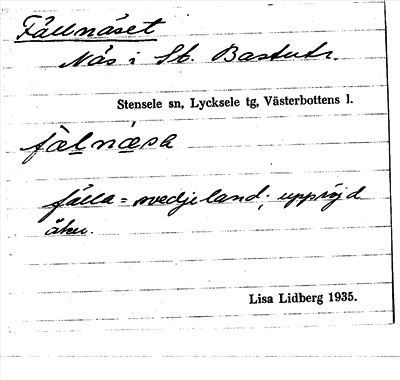 Fällnäset
Näs i St. Bastutr.
Stensele sn, Lycksele tg, Västerbottens l.
fälnæsa
fälla = svedjeland; uppröjd
åker.
Lisa Lidberg 1935.